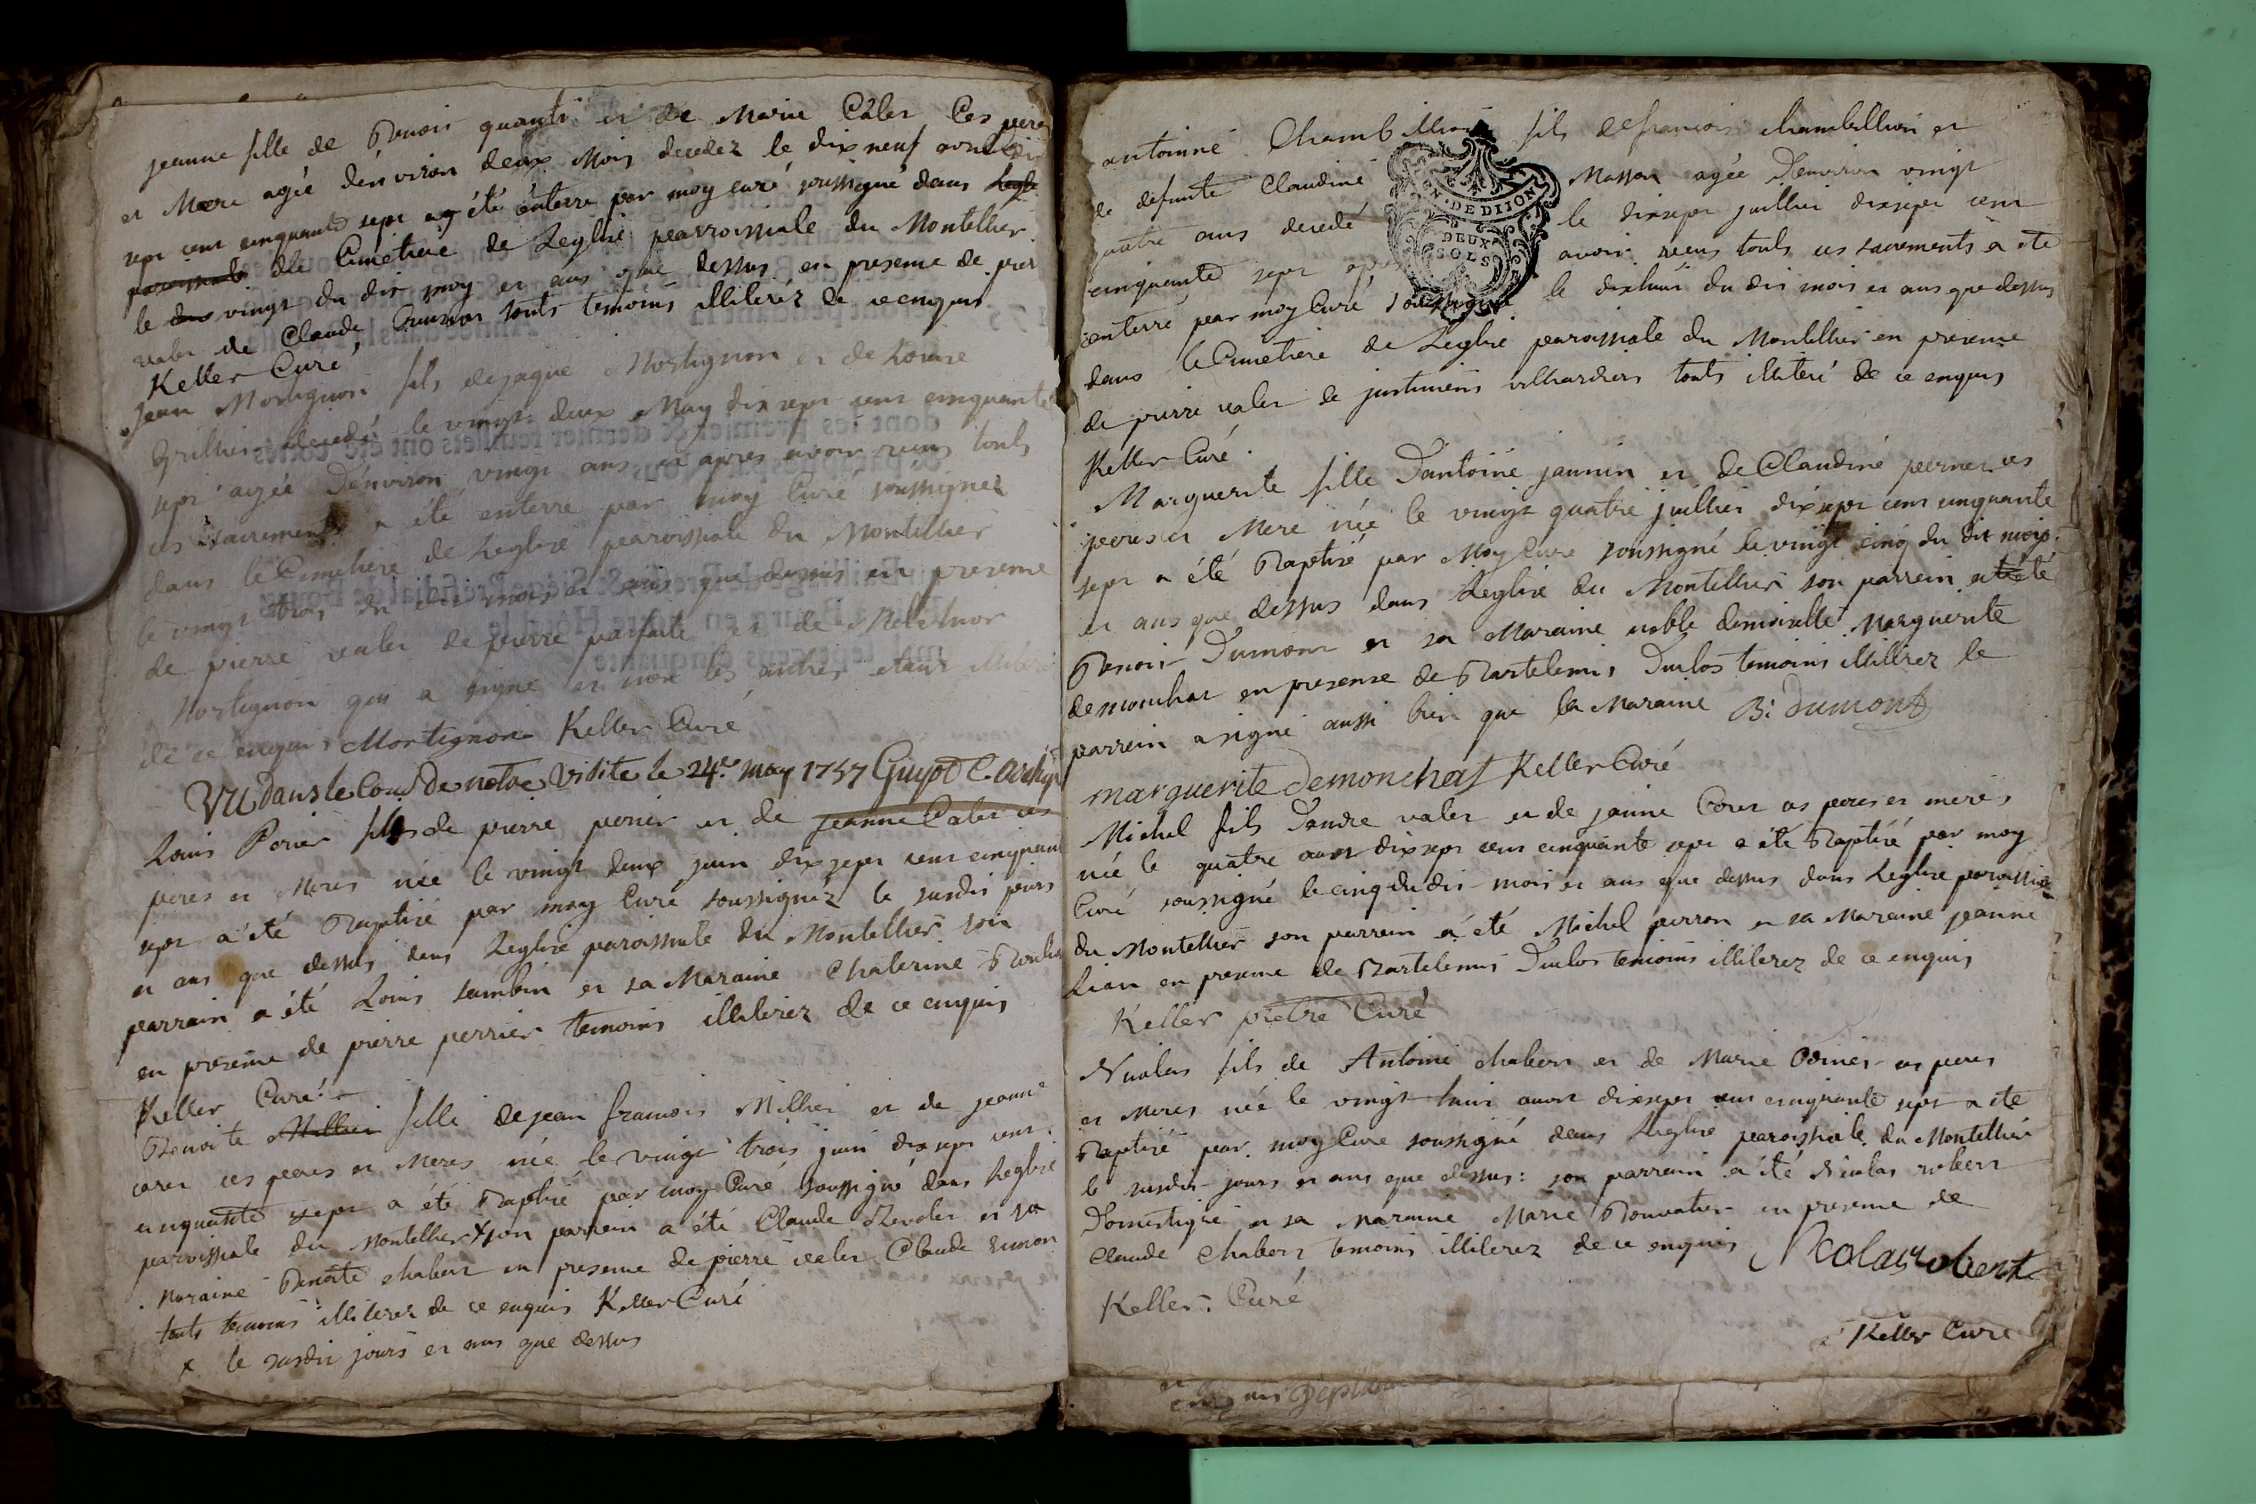 jeanne fille de Benoit quanti et de Marie Caler Ces peres
et Mere agée d'environ deux Mois decedez le dix neuf avril dix
sept cent cinquante sept a été enterre par moy curé soussigné dans
paroissiale le Cimetiere de Leglise parroissiale du Montellier
le vingt du dit moy et ans que dessus en presence de pierre
valer de Claude Suinon touts temoins illiterez de ce enquis
Keller Curé
Jean Mortignon fils de jaque Mortignon et de Louise
Grillier decedé le vingt deux May dix sept cent cinquante
sept agée D'environ vingt ans et apres avoir recus touts
ces sacrements a été enterre par moy Curé soussignez
dans le Cimetiere de Leglise paroissiale du Montellier
le vingt trois du dit mois et ans que dessus en presence
de pierre valer de pierre parfaite et de Melchior
Mortignon qui a signe et non les autres etant illiterez
de ce enquis Mortignon Keller Curé
Vu dans le Cours De notre Visite le 24.e may 1757 Guyot C. Archip
Louis Perier fils de pierre perier et de jeanne Caler ces
peres et Meres née le vingt deux juin dix sept cent cinquante
sept a été Baptisé par moy Curé soussignéz le susdit jours
et ans que dessus dans Leglise paroissiale du Montellier son
parrain a été Louis sambin et sa Maraine Chaterine
en presence de pierre perrier temoins illiterez de ce enquis
Keller Curé
Benoite Millier fille de jean francois Millier et de jeanne
corer ces peres et Meres née le vingt trois juin dix sept cent
cinquante sept a été Baptisé par moy Curé soussigné dans Leglise
paroissiale du Montellier x son parrein a été Claude Revoler et sa
Maraine Benoite chabert en presence de pierre valer Claude suinon
touts temoins illiterez de ce enquis Keller Curé
x le susdit jours et ans que dessus
antoinne Chambillion fils de francois chambillion et
de defunte Claudine Masson agée D'environ vingt
quatre ans decedé le dixsept juillier dixsept cent
cinquante sept apres avoir recus touts ces sacrements a été
enterré par moy Curé soussigné le dixhuit du dit mois et ans que dessus
dans le Cimetiere de Leglise paroissiale du Montellier en presence
de pierre valer de justinien villiardier touts illiteré de ce enquis
Keller Curé.
GEN. DE DIJON
DEUX SOLS
Marguerite fille D'antoine jannin et de Claudine perner ces
peres et Mere née le vingt quatre juillier dix sept cent cinquante
sept a été Baptisé par Moy Curé soussigné le vingt cinq du dit mois
et ans que dessus dans Leglise du Montellier son parrein a été
Benoit Dumont et sa Maraine noble demoiselle Marguerite
demonchat en presense de Bartelemi Duclos temoins illiterez le
parrein a signé aussi bien que la Maraine B: Dumont
marguerite Demonchat Keller Curé
Michel fils D'andre valer et de janne Corer ces peres et meres
née le quatre aout dix sept cent cinquante sept a été Baptisé par moy
Curé soussigné le cinq du dit mois et ans que dessus dans Leglise paroissiale
du Montellier son parrein a été Michel perron et sa Maraine jeanne
Lian en presence de Bartelemi Duclos temoins illiterez de ce enquis
Keller pretre Curé
Nicolas fils de Antoine chabert et de Marie Odinet ces peres
et Meres née le vingt huit aout dixsept cent cinquante sept a été
Baptisé par moy Curé soussigné dans Leglise paroissiale du Montellier
le susdit jours et ans que dessus: son parrein a été Nicolas robert
Domestique et sa maraine Marie Bouvatier en presence de
Claude Chabert temoins illiterez de ce enquis Nicolas robert
Keller Curé
Keller Curé